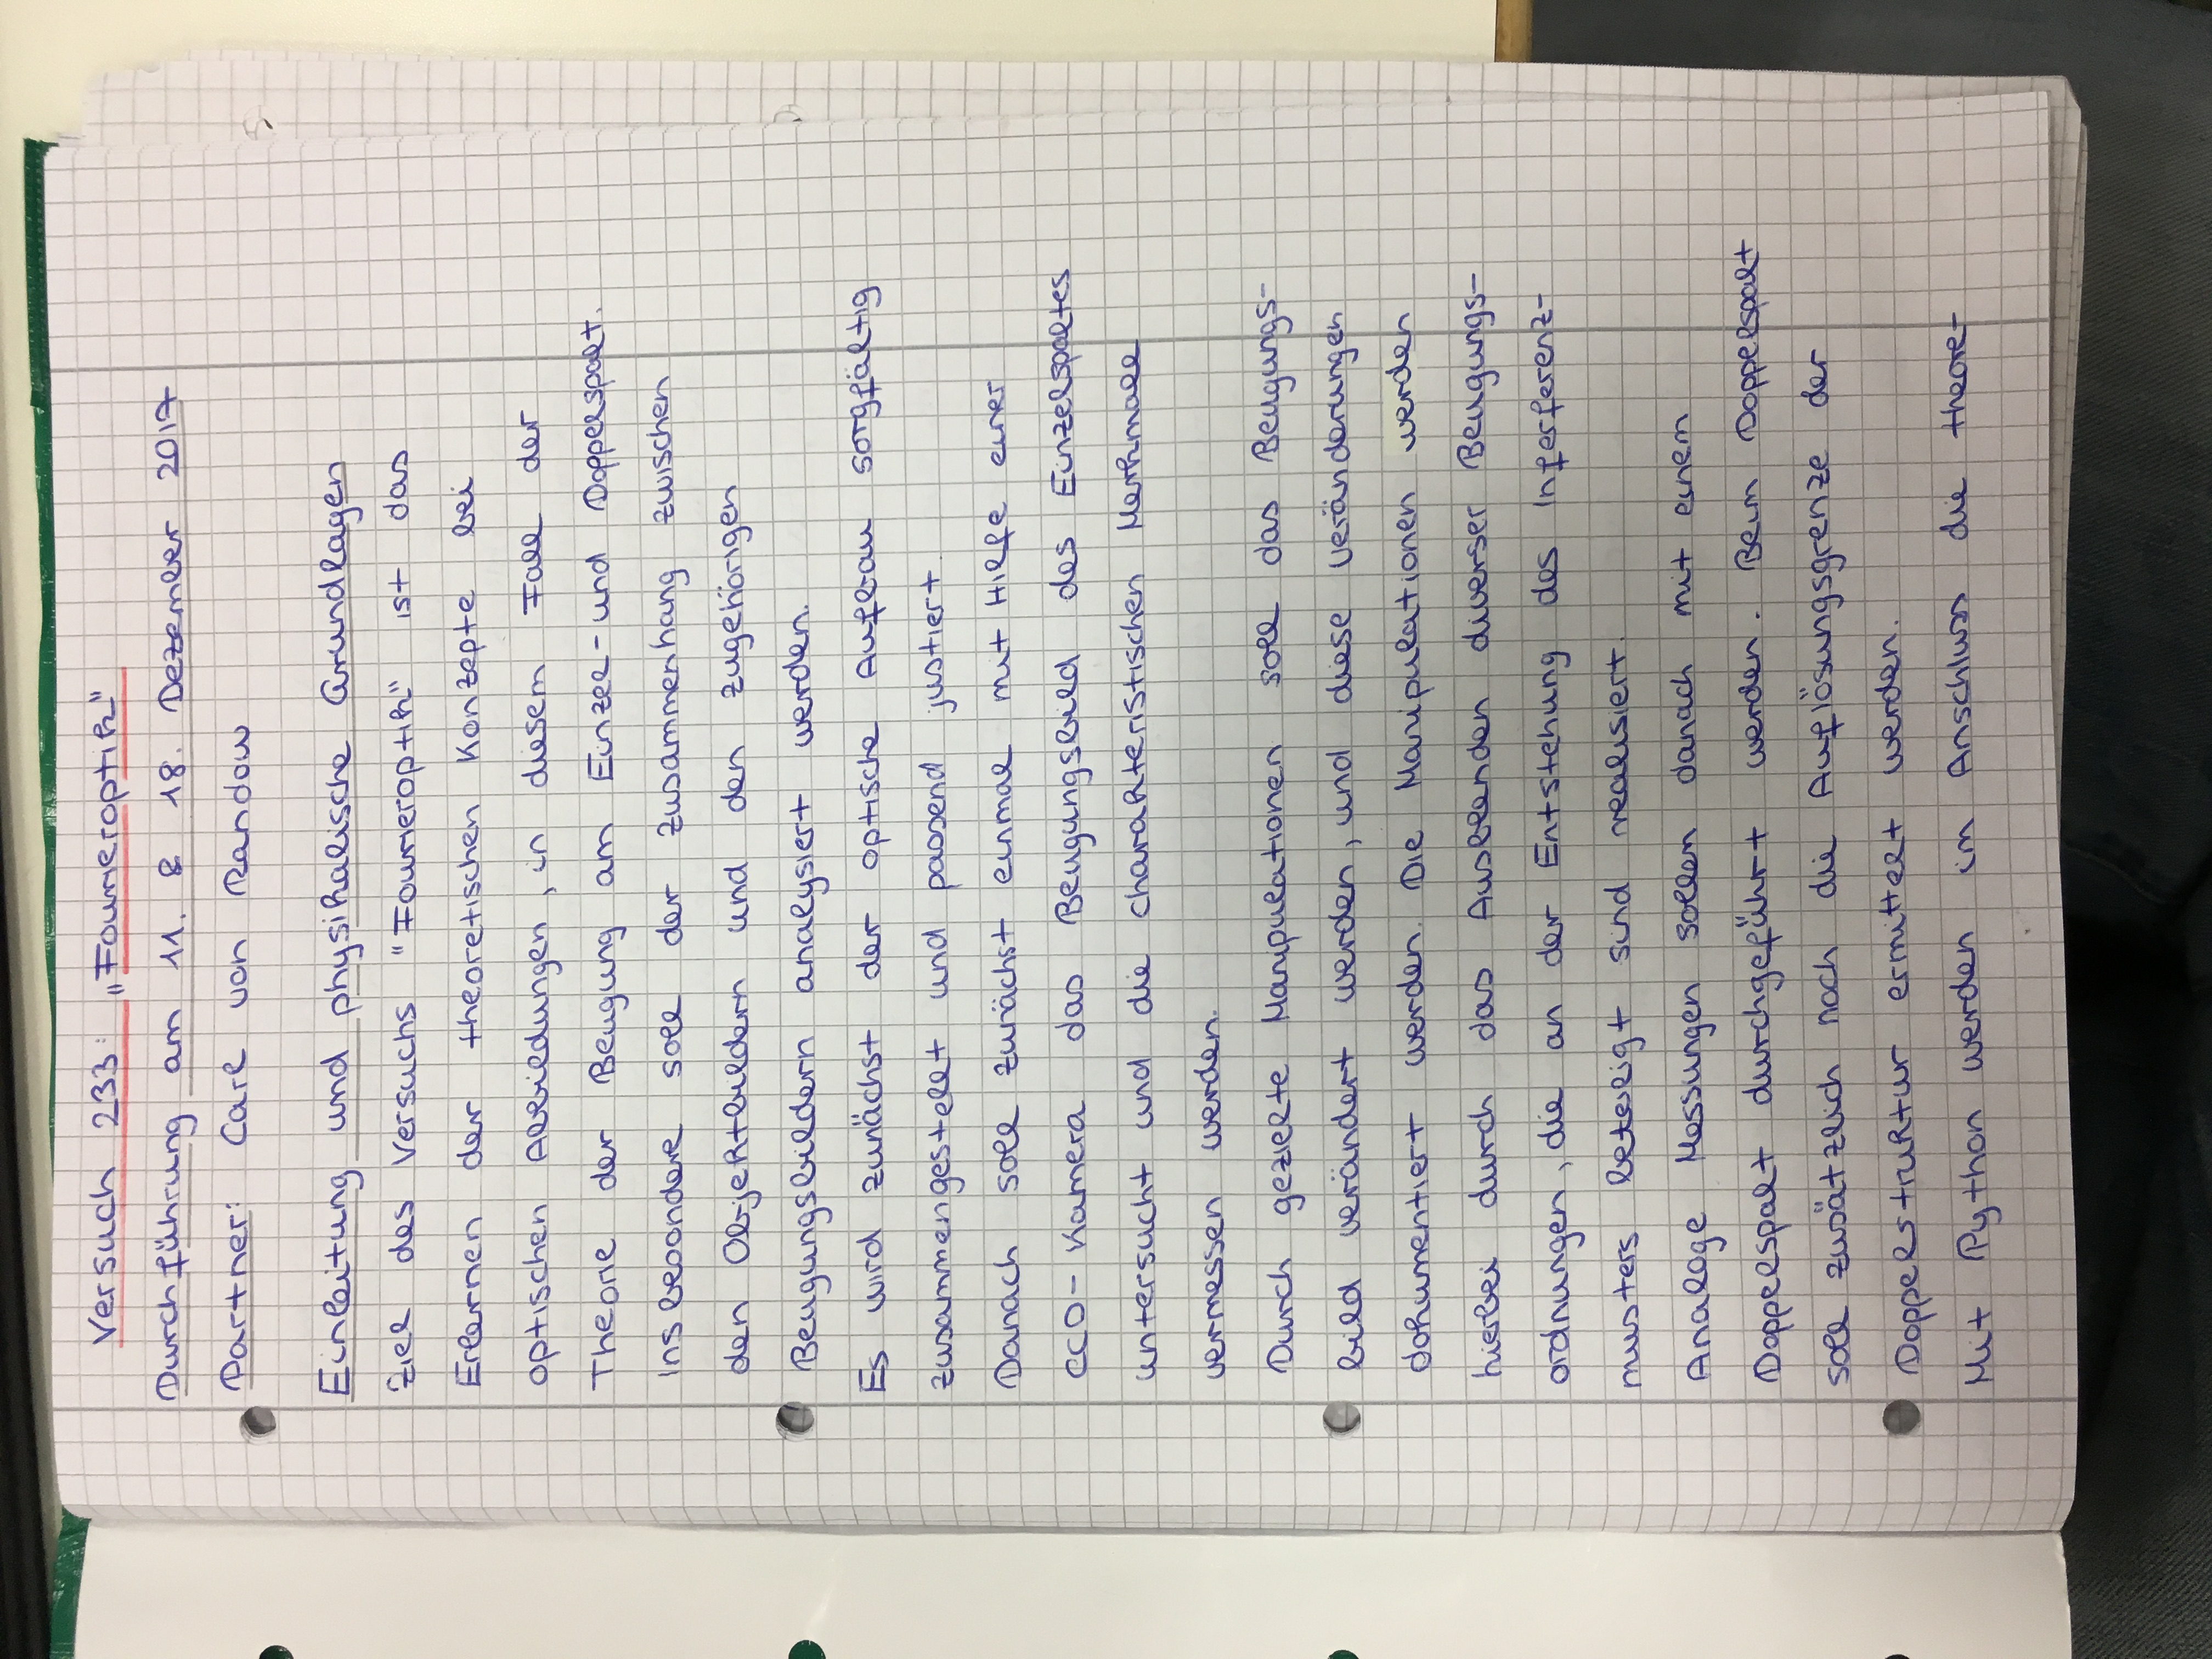 Versuch 233: „Fourieroptik"
Durchführung am 11. & 18. Dezember 2017
Partner: Carl von Randow
Einleitung und physikalische Grundlagen
Ziel des Versuchs "Fourieroptik" ist das
Erlernen der theoretischen Konzepte bei
optischen Abbildungen, in diesem Fall der
Theorie der Beugung am Einzel- und Doppelspalt.
Insbesondere soll der Zusammenhang zwischen
den Objektbildern und den zugehörigen
Beugungsbildern analysiert werden.
Es wird zunächst der optische Aufbau sorgfältig
zusammengestellt und passend justiert.
Danach soll zunächst einmal mit Hilfe einer
CCD-Kamera das Beugungsbild des Einzelspaltes
untersucht und die charakteristischen Merkmale
vermessen werden.
Durch gezielte Manipulationen soll das Beugungs-
bild verändert werden, und diese Veränderungen
dokumentiert werden. Die Manipulationen werden
hierbei durch das Ausblenden diverser Beugungs-
ordnungen, die an der Entstehung des Inferferenz-
musters beteiligt sind realisiert.
Analoge Messungen sollen danach mit einem
Doppelspalt durchgeführt werden. Beim Doppelspalt
soll zusätzlich noch die Auflösungsgrenze der
Doppelstruktur ermittelt werden.
Mit Python werden im Anschluss die theore-